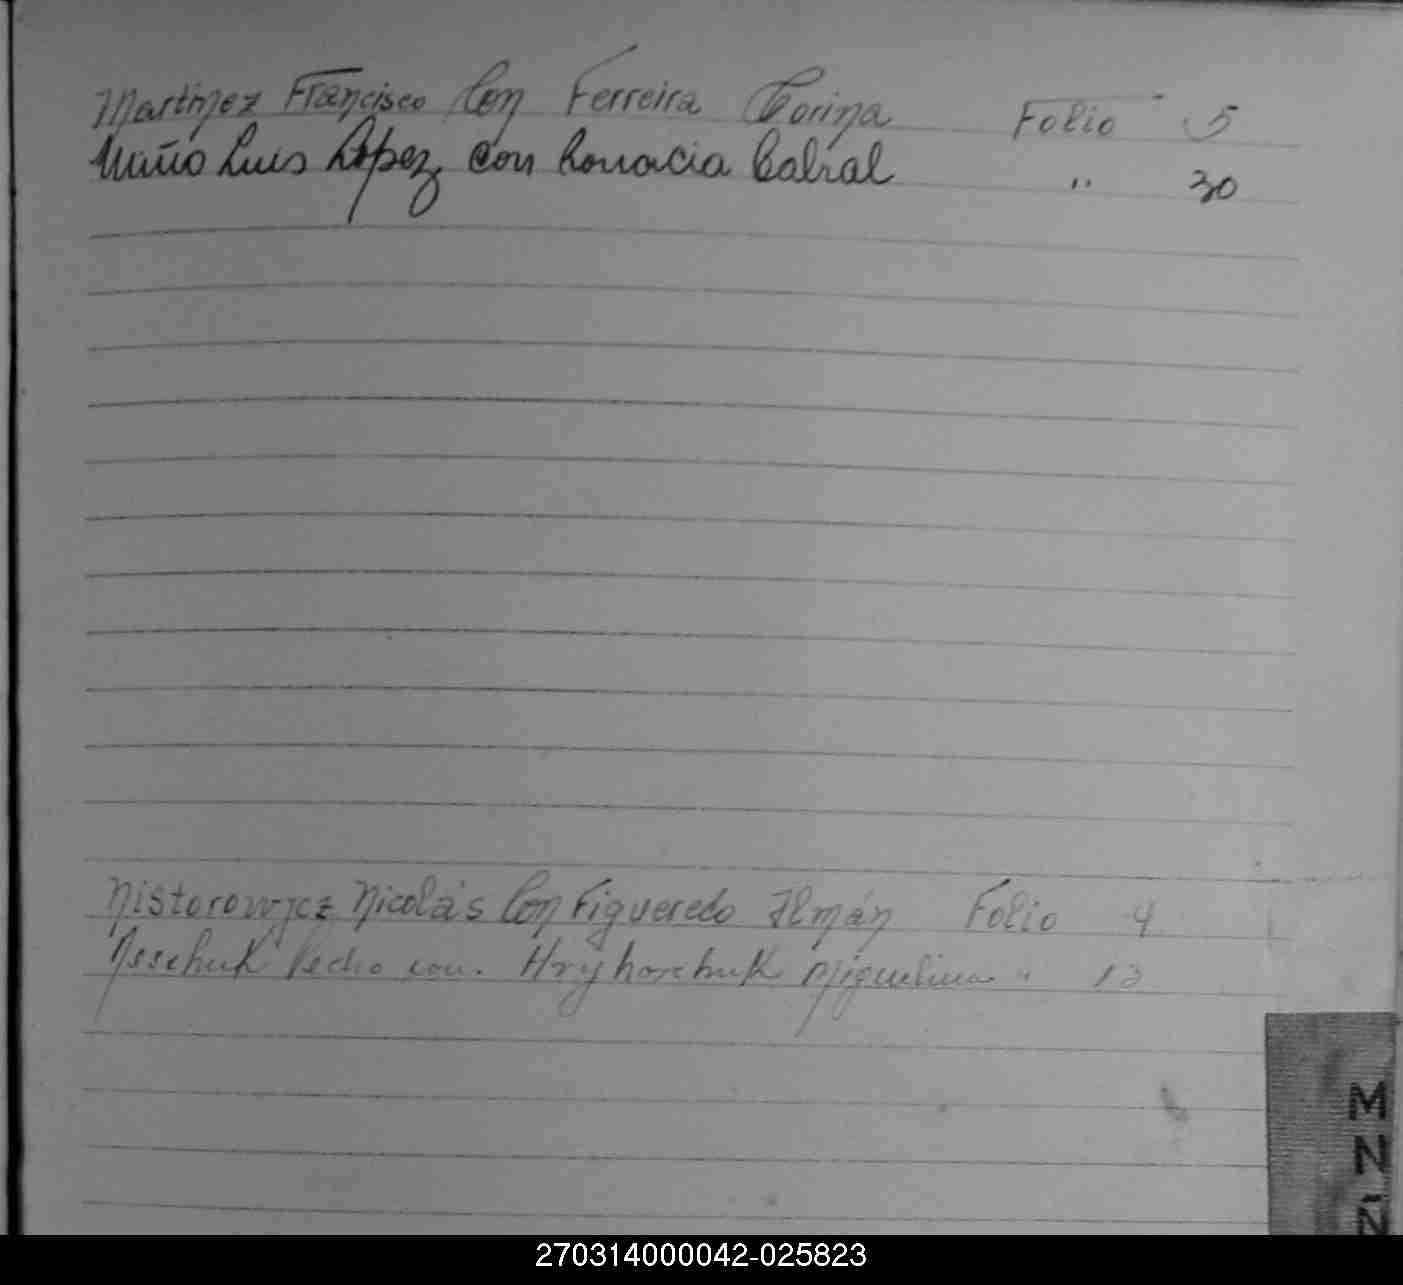 Martinez Francisco Con Ferreira Corina Folio 5
Luis López con Cabral " 30
Nistorowycz Nicolás Con Figueredo Ilmán Folio 4
Pedro con. Hryhorchuk Miguelina " 13
M
N
Ñ
270314000042-025823